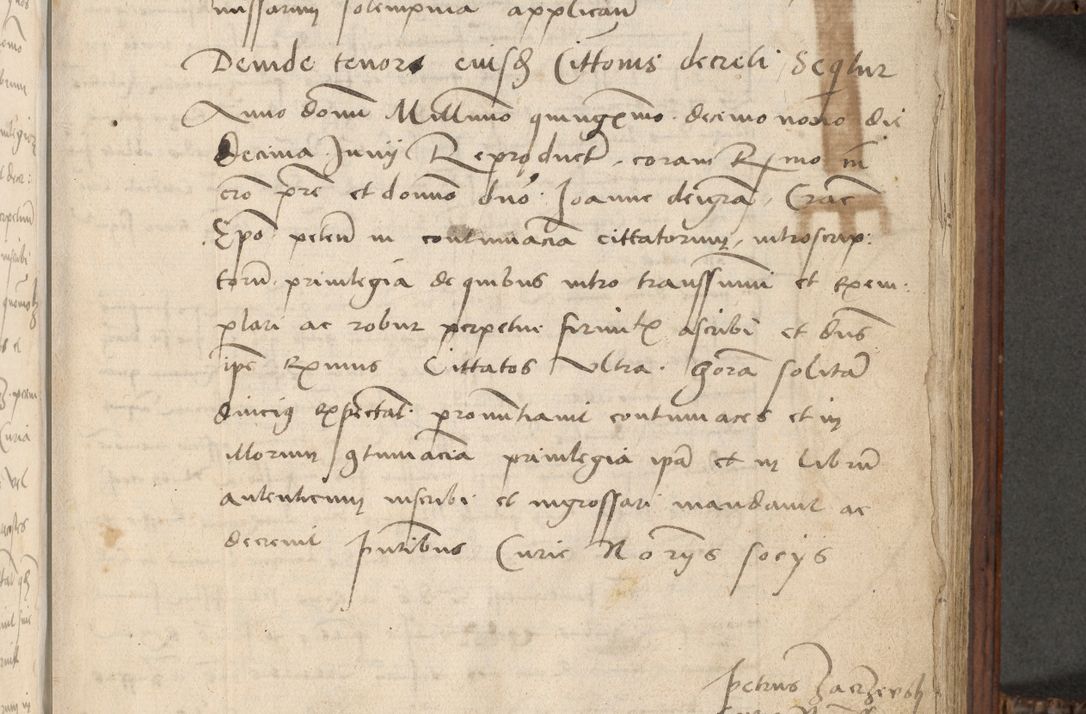 missarum solempnia applican
Deinde tenor eiusd Cittonis decreti Seqtur
Anno domi Millimo quingmo decimo nono die
Decima Junij Reproduct coram Rmo in
cro pre et domo duo Joanne dei gra Crac
Epo peten in contumacia cittatorum introscrip:
torum priuilegia de quibus intro transsumi et exem:
plari ac robur perpetue firmit ascribi et dns
ipe Rmus Cittatos vltra horam solitam
diucius expectat pronuntiauit contumaces et in
illorum contumacia priuilegia ipa et in Librum
autenticum inscribi et ingrossari mandauit ac
decreuit pntibus Curie Norijs socijs
Petrus